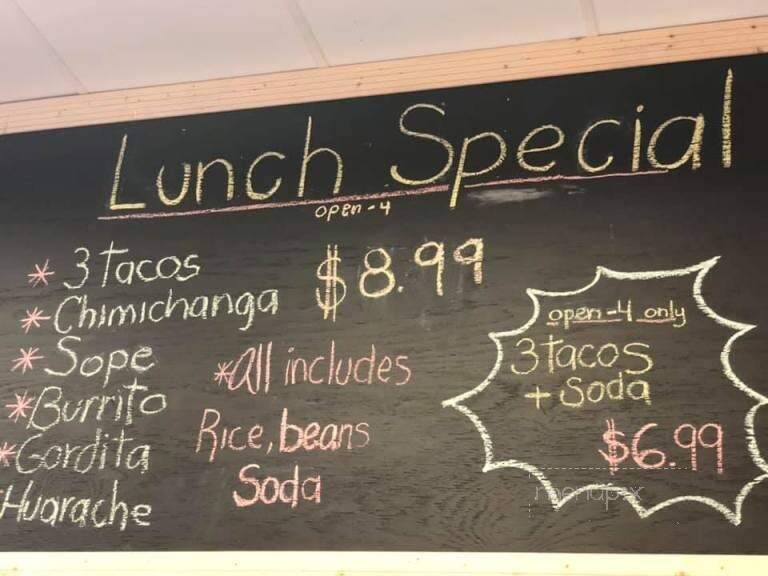 Lunch Special
open-4
* 3 tacos
* Chimichanga
* Sope
* Burrito
* Gordita
Huarache
$8.99
*all includes
Rice, beans
Soda
open-4 only
3 tacos
+ Soda
$6.99
menupix